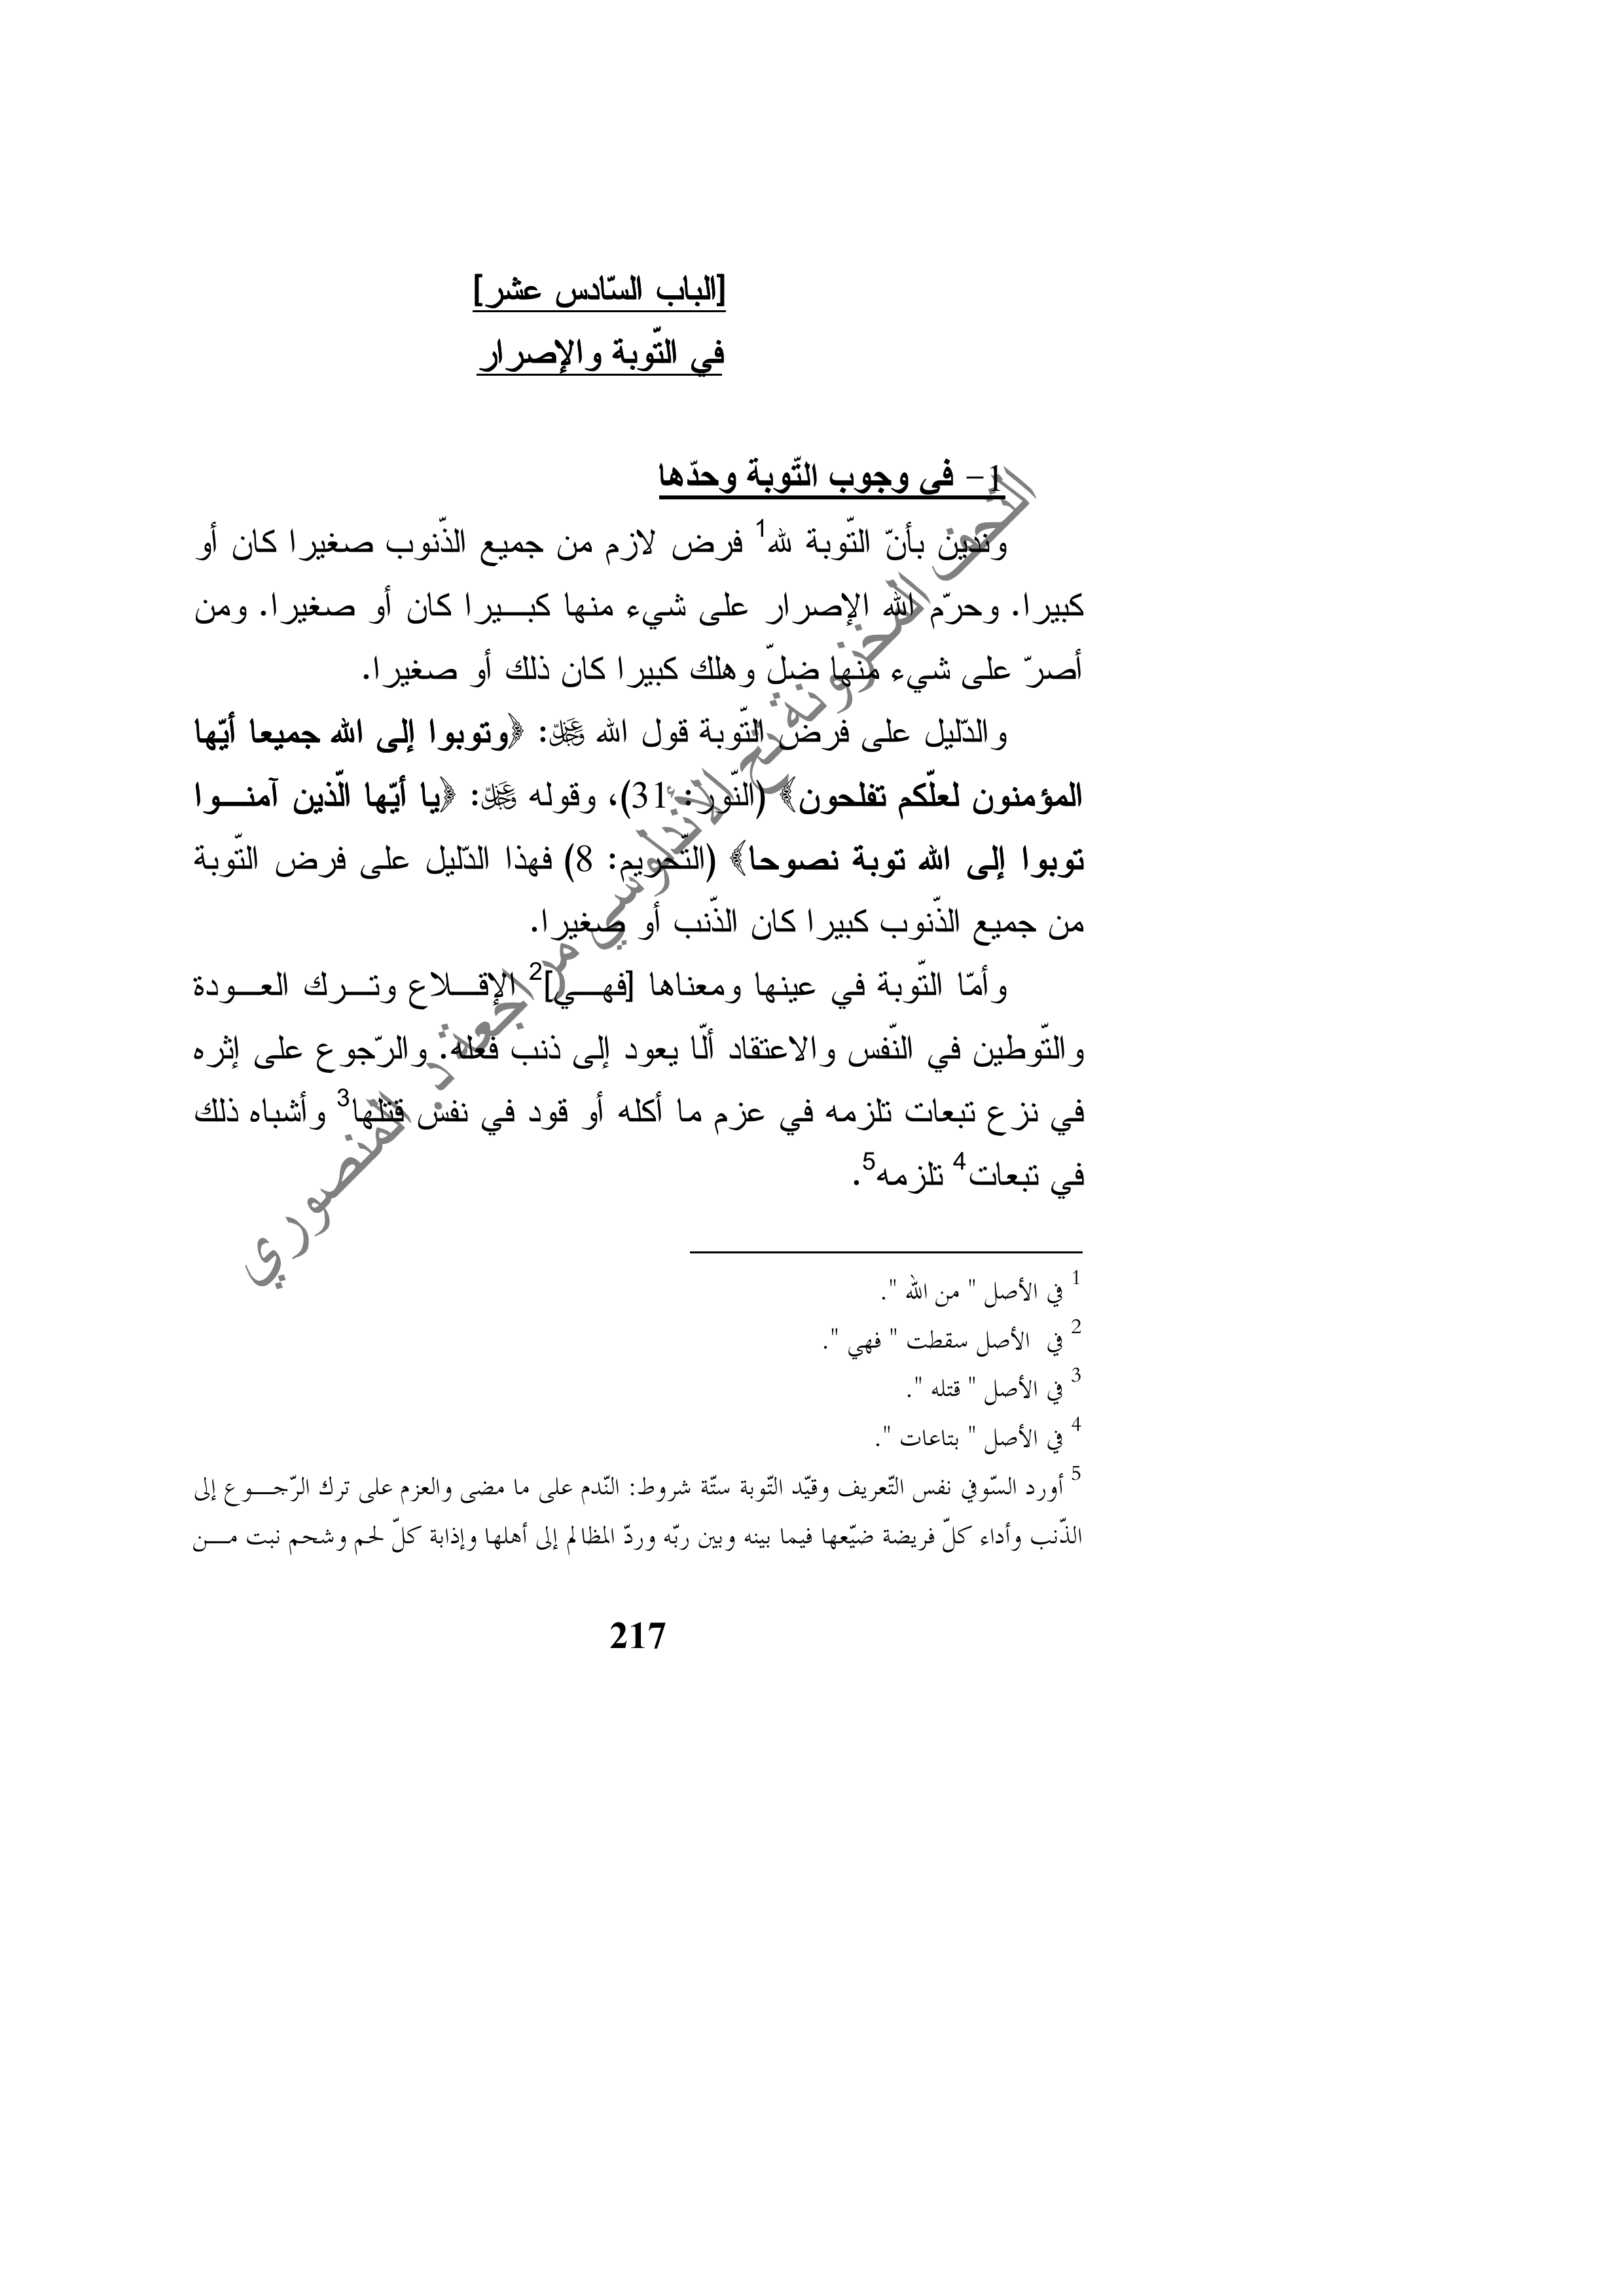 [الباب السّادس عشر]
في التّوبة والإصرار
1- في وجوب التّوبة وحدّها
وندين بأنّ التّوبة لله1 فرض لازم من جميع الذّنوب صغيرا كان أو
كبيرا. وحرّم الله الإصرار على شيء منها كبـــيرا كان أو صغيرا. ومن
أصرّ على شيء منها ضلّ وهلك كبيرا كان ذلك أو صغيرا.
والدّليل على فرض التّوبة قول الله عزّ وجلّ: ﴿وتوبوا إلى الله جميعا أيّها
المؤمنون لعلّكم تفلحون﴾ (النّور: 31)، وقوله عزّ وجلّ: ﴿يا أيّها الّذين آمنـــوا
توبوا إلى الله توبة نصوحا﴾ (التّحريم: 8) فهذا الدّليل على فرض التّوبة
من جميع الذّنوب كبيرا كان الذّنب أو صغيرا.
وأمّا التّوبة في عينها ومعناها [فهـــي]2 الإقـــلاع وتـــرك العـــودة
والتّوطين في النّفس والاعتقاد ألّا يعود إلى ذنب فعله. والرّجوع على إثره
في نزع تبعات تلزمه في عزم ما أكله أو قود في نفس قتلها3 وأشباه ذلك
في تبعات4 تلزمه5.
التحف المخزونة تح الأندلوسي مراجعة د. المنصوري
1 في الأصل " من الله ".
2 في الأصل سقطت " فهي ".
3 في الأصل " قتله ".
4 في الأصل " بتاعات ".
5 أورد السّوفي نفس التّعريف وقيّد التّوبة ستّة شروط: النّدم على ما مضى والعزم على ترك الرّجـــوع إلى
الذّنب وأداء كلّ فريضة ضيّعها فيما بينه وبين ربّه وردّ المظالم إلى أهلها وإذابة كلّ لحم وشحم نبت مـــن
217